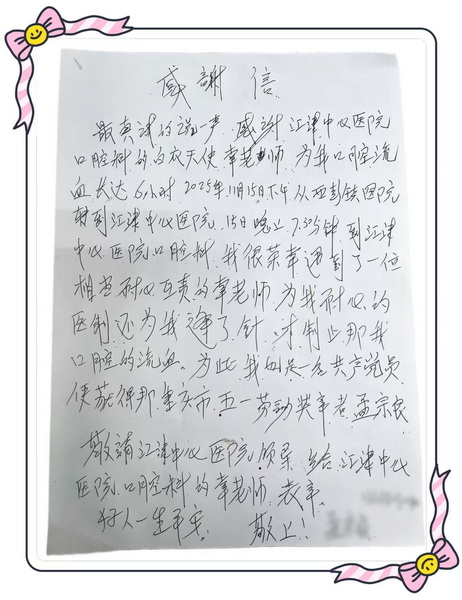 感謝信
最真诚的说一声 感谢江津中心医院
口腔科的白衣天使章老师 为我口腔流
血长达6小时 2025年11月15日下午从西彭镇医院
转到江津中心医院 15日晚上7.35分钟到江津
中心医院口腔科. 我很荣幸遇到了一位
相当耐心负责的章老师 为我耐心的
医制还为我逢了针 才制止那我
口腔的流血. 为此我也是一名共产党员
便获得那重庆市五一劳动奖章者孟宗
敬請江津中心医院领导 给江津中心
医院口腔科的章老师 表章.
好人一生平安. 敬上!